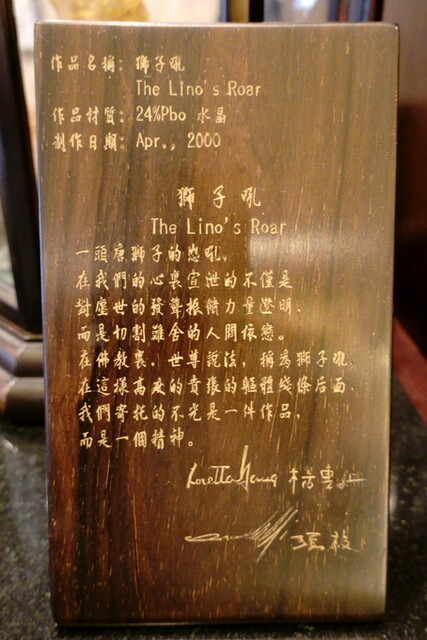 作品名稱：獅子吼
The Lino's Roar
作品材質：24%Pbo 水晶
制作日期：Apr., 2000
獅子吼
The Lino's Roar
一頭唐獅子的怒吼，
在我們的心裹宣泄的不僅是
對塵世的發聾振饋力量澄明，
而是切割難舍的人間依戀。
在佛教裹，世尊說法，稱為獅子吼，
在這樣高度的貴張的軀體綫條后面，
我們寄托的不光是一件作品，
而是一個精神。
Loretta Yang 楊惠姍
張毅